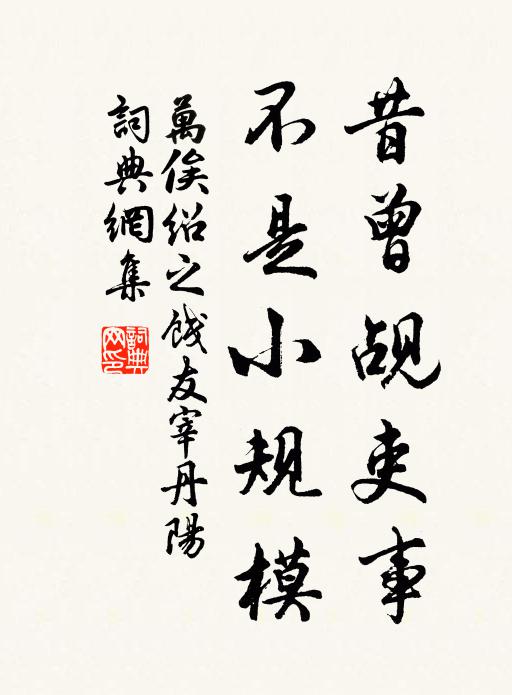 昔曾觇吏事
不是小规模
萬俟绍之饯友宰丹陽
詞典網集
詞典網印